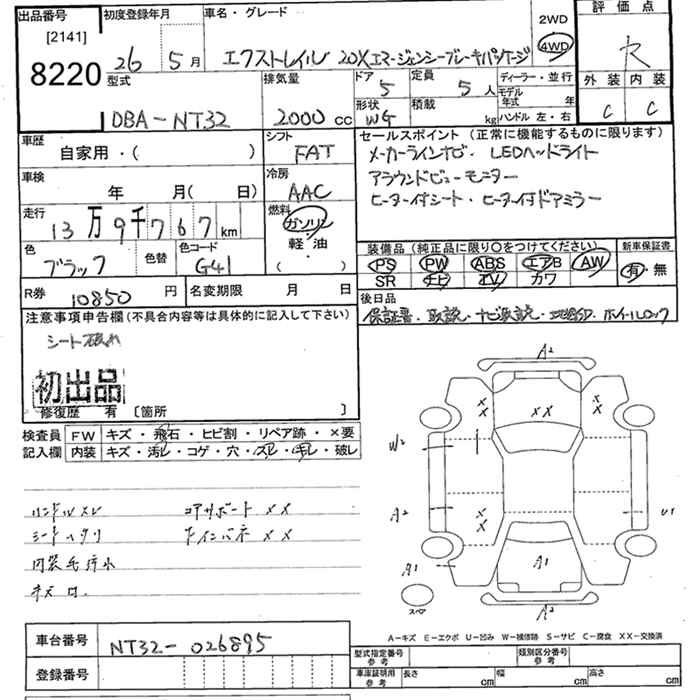 出品番号
[2141]
8220
初度登録年月
26 5月
車名・グレード
エクストレイル 20X エマージェンシーブレーキパッケージ
2WD
4WD
評価点
R
外装 内装
C C
型式
DBA-NT32
排気量
2000 cc
ドア
5
定員
5人
形状
WG
積載
kg
ディーラー・並行
モデル年式 年
ハンドル 左・右
車歴
自家用・( )
シフト
FAT
車検
年 月( 日)
冷房
AAC
走行
13万9千767km
燃料
ガソリン
軽・油
( )
色
ブラック
色替
色コード
G41
R券
10850円
名変期限 月 日
セールスポイント(正常に機能するものに限ります)
メーカーラインナビ・LEDヘッドライト
アラウンドビューモニター
ヒーター付シート・ヒーター付ドアミラー
装備品(純正品に限り○をつけてください)
PS PW ABS エアB AW
SR ナビ TV カワ
新車保証書
有・無
後日品
保証書・取説・ナビ取説・ホイールロック
注意事項申告欄(不具合内容等は具体的に記入して下さい)
シート破れ
初出品
修復歴 有 〔箇所 〕
検査員記入欄
FW キズ・飛石・ヒビ割・リペア跡・×要
内装 キズ・汚レ・コゲ・穴・スレ・キレ・破レ
ハンドルスレ コアサポートXX
シートヘタリ
A2
XX
XX
XX
W2
A2
XX
U1
A1
A1
スペア
A2
A-キズ E-エクボ U-凹み W-補修跡 S-サビ C-腐食 XX-交換済
車台番号
NT32-026895
登録番号
型式指定番号
参考
類別区分番号
参考
車庫証明用
参考
長さ cm
幅 cm
高さ cm